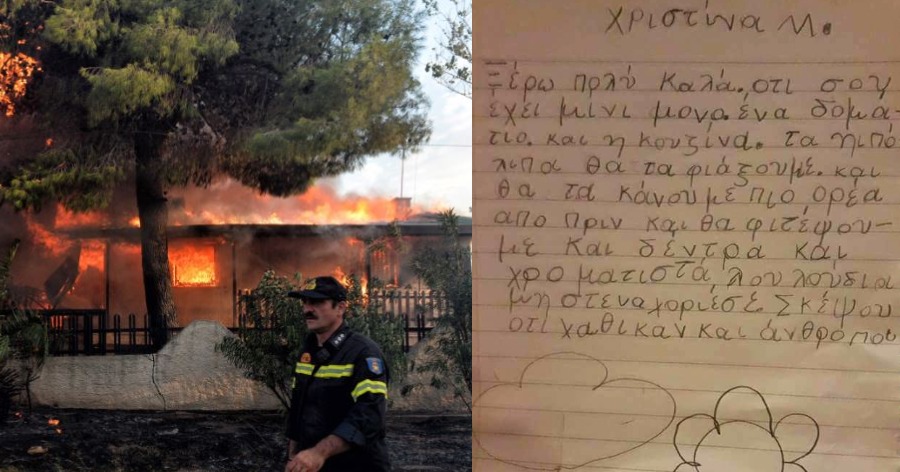 χριστίνα Μ.
Ξέρω πολύ καλά. οτι σου
έχει μίνι μονο.ένα δομά-
τιο. και η κουζίνα. τα ηπό
λιπα θά τα φιάξουμε. και
θα τα κάνουμε πιο ορέα
απο πριν και θα φιτέψου-
με και δέντρα και
χρο ματιστα, λου λούδια
μη στενα χοριέσε. Σκέψου
οτι χαθικαν και άνθρόποι